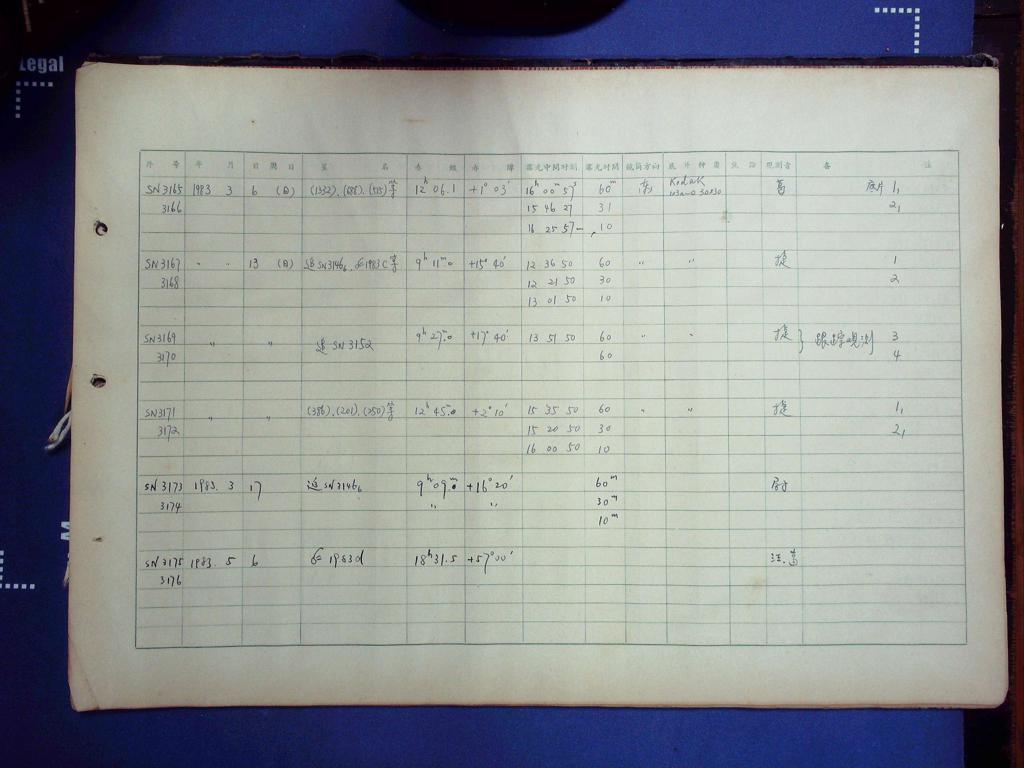 Legal
序 号 年 月 日 星 名 赤 經 赤 緯 露光中間时刻 露光时間 鏡筒方向 底片种类 观测者 备 註
SN3165 1983 3 6 (日) (1332). (688). (555)等 12ʰ 06.1 +1° 03′ 16ʰ 00ᵐ 57ˢ 60ᵐ 东 Kodak 葛 底片 1,
3166 15 46 27 31 103a-O 30×30 2,
16 25 57 10
SN3167 〃 〃 13 (日) 追SN3146₆ 1983C等 9ʰ 11ᵐ.0 +15° 40′ 12 36 50 60 〃 〃 捷 1
3168 12 21 50 30 2
13 01 50 10
SN3169 〃 〃 追 SN3152 9ʰ 27ᵐ.0 +17° 40′ 13 51 50 60 〃 〃 捷 } 跟踪观测 3
3170 60 4
SN3171 〃 〃 (386). (201). (250)等 12ʰ 45ᵐ.0 +2° 10′ 15 35 50 60 〃 〃 捷 1,
3172 15 20 50 30 2,
16 00 50 10
SN3173 1983. 3 17 追SN3146₆ 9ʰ 09ᵐ.0 +16° 20′ 60ᵐ
3174 〃 〃 30ᵐ
10ᵐ
SN3175 1983. 5 6 1983d 18ʰ31.5 +57° 00′ 汪.葛
3176